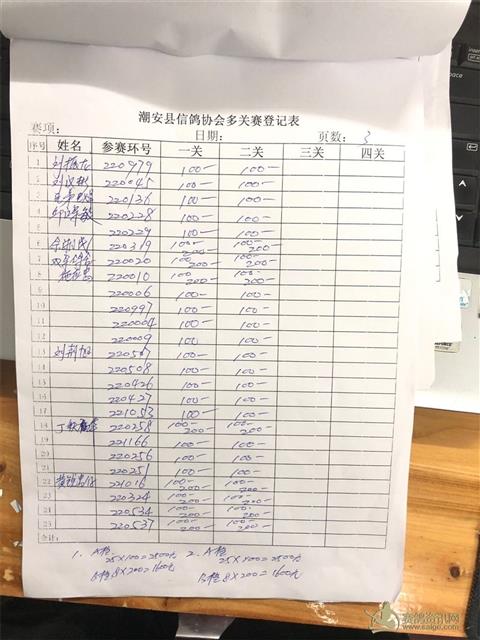 潮安县信鸽协会多关赛登记表
赛项: 日期: 页数: 3
序号 姓名 参赛环号 一关 二关 三关 四关
1 刘振龙 220979 100- 100-
2 220045 100- 100-
3 220136 100- 100-
4 220228 100- 100-
5 220229 100- 100-
6 220319 100- 200- 100- 200-
7 220020 100- 200- 100- 200-
8 220010 100- 200- 100- 200-
9 220006 100- 100-
10 220997 100- 100-
11 220004 100- 100-
12 220009 100- 100-
13 刘荆旭 220507 100- 100-
14 220508 100- 100-
15 220426 100- 100-
16 220427 100- 100-
17 221053 100- 100-
18 220258 100- 200- 100- 200-
19 221166 100- 100-
20 220256 100- 100-
21 220251 100- 100-
22 221016 100- 200- 100- 200-
23 220324 100- 200- 100- 200-
24 220534 100- 200- 100- 200-
25 220537 100- 200- 100- 200-
合计:
1. A栏 2. A栏
25×100=2500元 25×100=2500元
B栏 8×200=1600元 B栏 8×200=1600元
赛鸽资讯网
www.saige.com